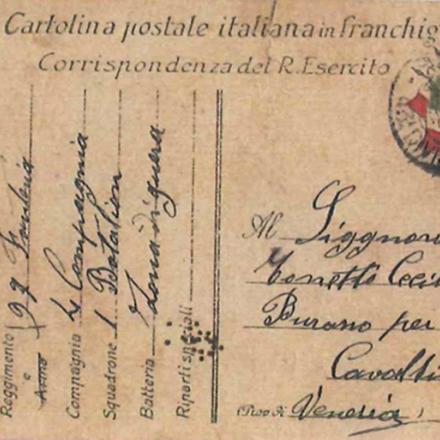 Cartolina postale italiana in franchig
Corrispondenza del R. Esercito
Reggimento e Arma 97 Fanteria
Compagnia 4 Compagnia
Squadrone 1 Batalion
Batteria Zona di guera
Riparti speciali
Al Siggnor
Tonetto Ceci
Burano per
Cavalli
Venezia